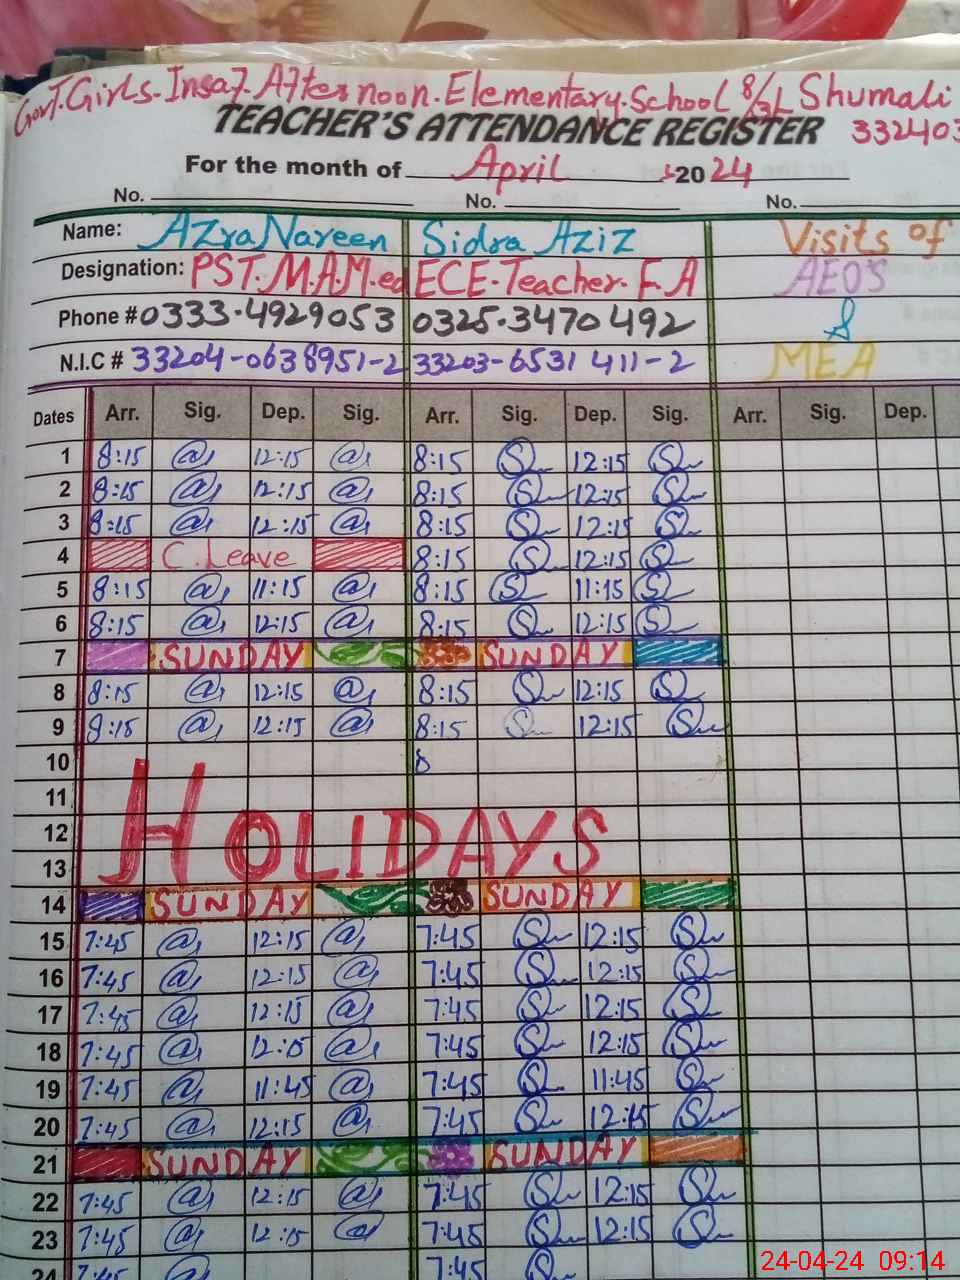 Govt. Girls. Insaf. Afternoon. Elementary. School 8/3L Shumali
TEACHER'S ATTENDANCE REGISTER 332403
For the month of April 2024
No. No. No.
Name: Azra Nareen Sidra Aziz Visits of
Designation: PST. M.A M.ed ECE. Teacher. F.A AEO'S
Phone # 0333-4929053 0325-3470492 &
N.I.C # 33204-0638951-2 33203-6531411-2 MEA
Dates Arr. Sig. Dep. Sig. Arr. Sig. Dep. Sig. Arr. Sig. Dep.
1 8:15 12:15 8:15 12:15
2 8:15 12:15 8:15 12:15
3 8:15 12:15 8:15 12:15
4 C. Leave 8:15 12:15
5 8:15 11:15 8:15 11:15
6 8:15 12:15 8:15 12:15
7 SUNDAY SUNDAY
8 8:15 12:15 8:15 12:15
9 8:15 12:15 8:15 12:15
10 8
11
12 HOLIDAYS
13
14 SUNDAY SUNDAY
15 7:45 12:15 7:45 12:15
16 7:45 12:15 7:45 12:15
17 7:45 12:15 7:45 12:15
18 7:45 12:15 7:45 12:15
19 7:45 11:45 7:45 11:45
20 7:45 12:15 7:45 12:15
21 SUNDAY SUNDAY
22 7:45 12:15 7:45 12:15
23 7:45 12:15 7:45 12:15
24 7:45 7:45
24-04-24 09:14